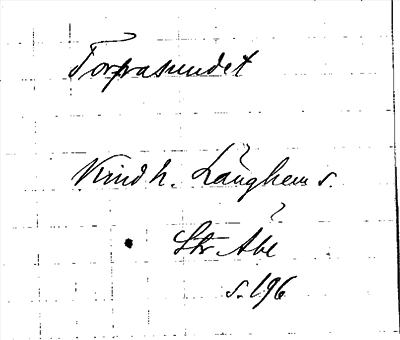 Torpasundet
Kind h. Länghem s.
Str Abl
s. 196